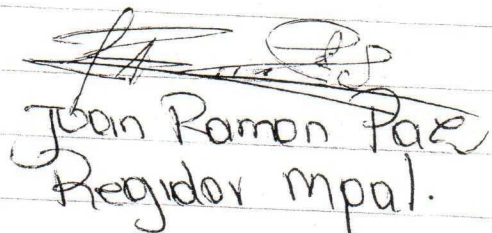 Juan Ramon Paz
Regidor mpal.